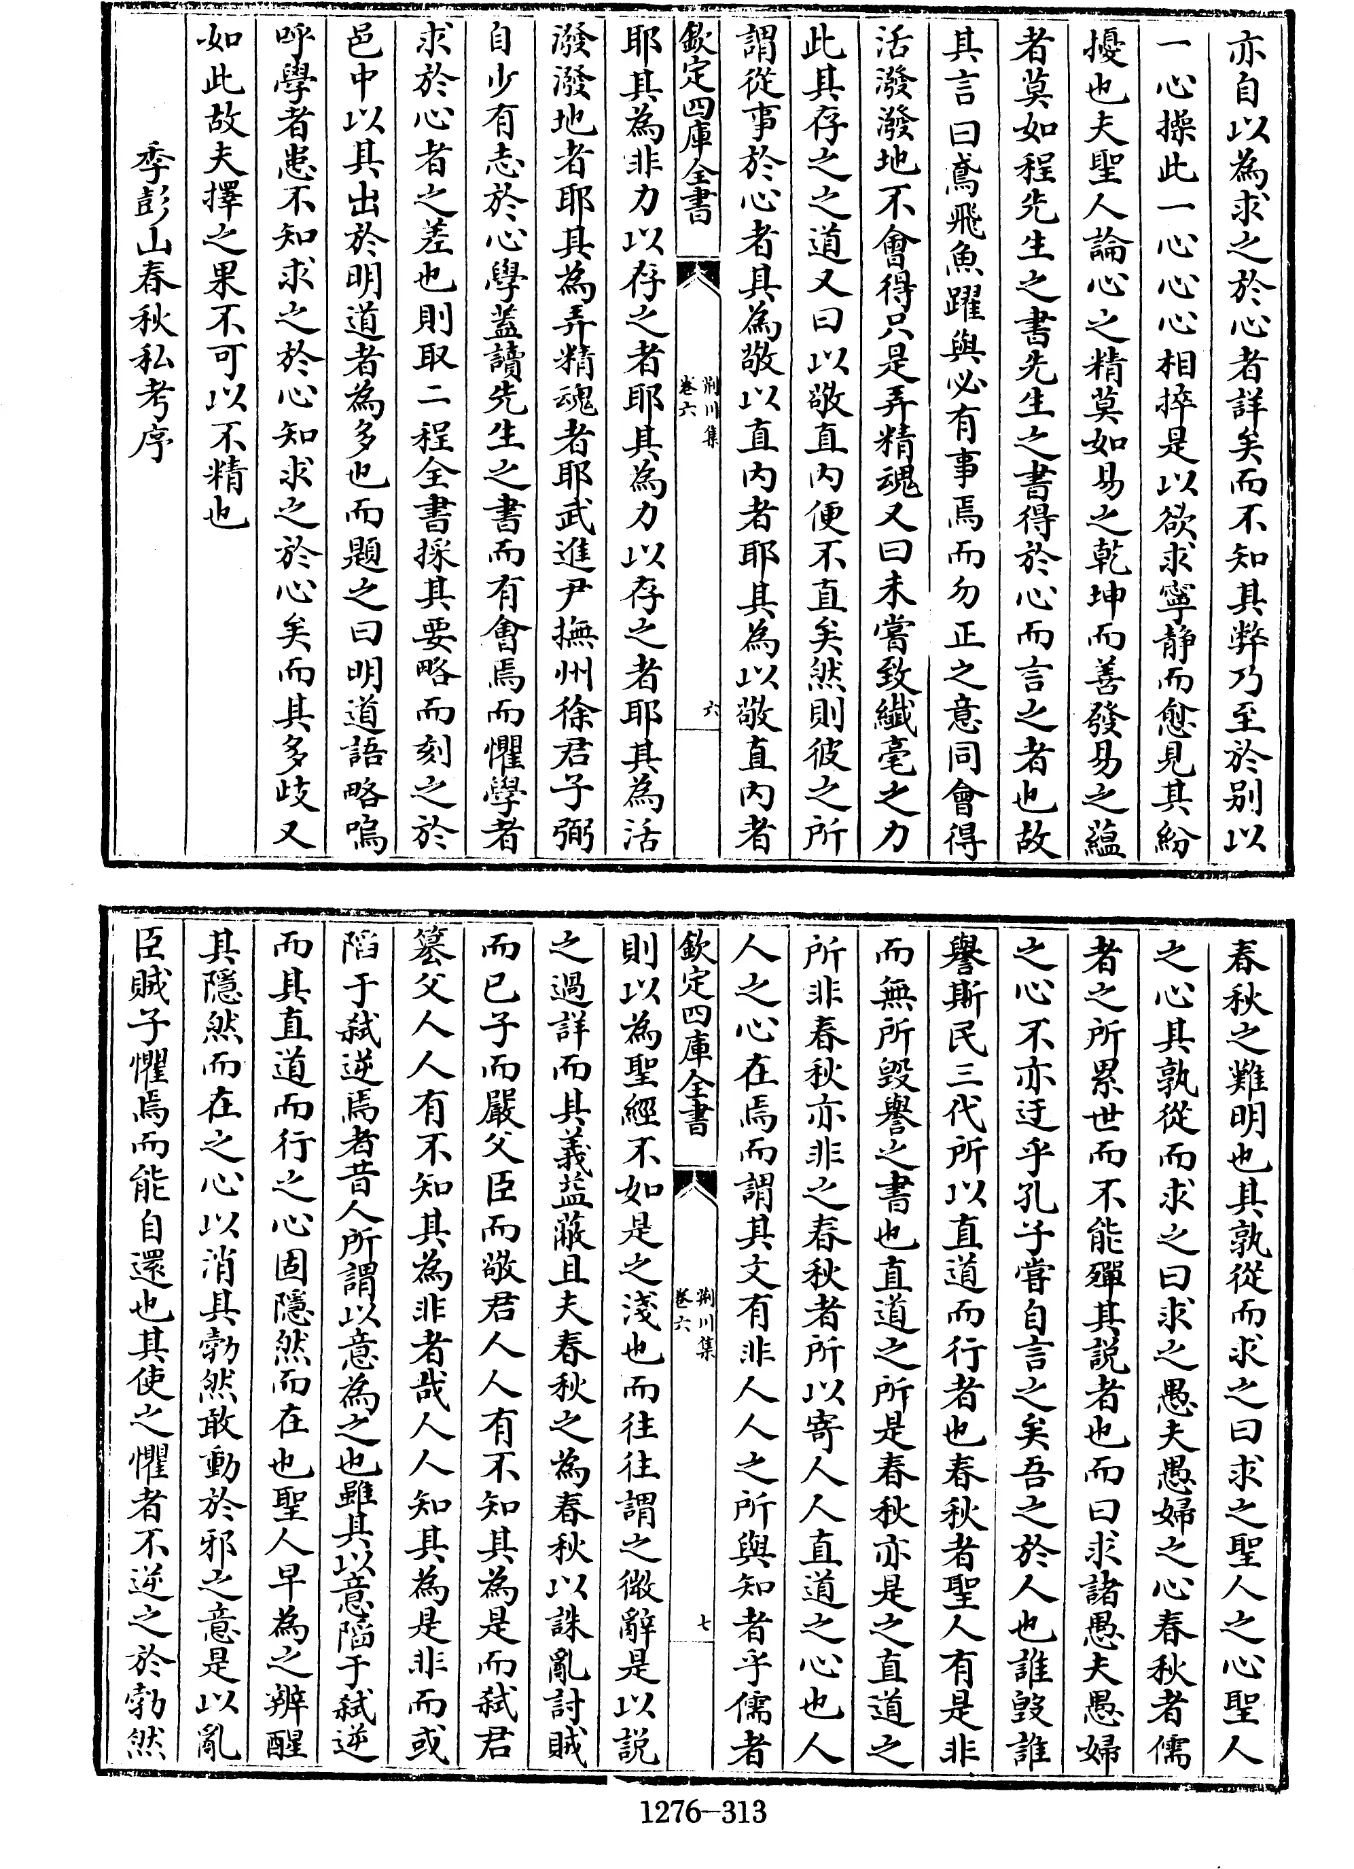 亦自以為求之於心者詳矣而不知其弊乃至於别以
一心操此一心心心相捽是以欲求寧静而愈見其紛
擾也夫聖人論心之精莫如易之乾坤而善發易之蘊
者莫如程先生之書先生之書得於心而言之者也故
其言曰鳶飛魚躍與必有事焉而勿正之意同會得
活潑潑地不會得只是弄精魂又曰未嘗致纖毫之力
此其存之之道又曰以敬直内便不直矣然則彼之所
謂從事於心者其為敬以直内者耶其為以敬直内者
欽定四庫全書
荆川集
卷六
六
耶其為非力以存之者耶其為力以存之者耶其為活
潑潑地者耶其為弄精魂者耶武進尹撫州徐君子弼
自少有志於心學蓋讀先生之書而有會焉而懼學者
求於心者之差也則取二程全書採其要略而刻之於
邑中以其出於明道者為多也而題之曰明道語略嗚
呼學者患不知求之於心知求之於心矣而其多歧又
如此故夫擇之果不可以不精也
季彭山春秋私考序
春秋之難明也其孰從而求之曰求之聖人之心聖人
之心其孰從而求之曰求之愚夫愚婦之心春秋者儒
者之所累世而不能殫其説者也而曰求諸愚夫愚婦
之心不亦迂乎孔子嘗自言之矣吾之於人也誰毀誰
譽斯民三代所以直道而行者也春秋者聖人有是非
而無所毁譽之書也直道之所是春秋亦是之直道之
所非春秋亦非之春秋者所以寄人人直道之心也人
人之心在焉而謂其文有非人人之所與知者乎儒者
欽定四庫全書
荆川集
卷六
七
則以為聖經不如是之淺也而往往謂之微辭是以説
之過詳而其義益蔽且夫春秋之為春秋以誅亂討賊
而已子而嚴父臣而敬君人人有不知其為是而弑君
篡父人人有不知其為非者哉人人知其為是非而或
陷于弑逆焉者昔人所謂以意為之也雖其以意陷于弑逆
而其直道而行之心固隱然而在也聖人早為之辨醒
其隱然而在之心以消其勃然敢動於邪之意是以亂
臣賊子懼焉而能自還也其使之懼者不逆之於勃然
1276-313